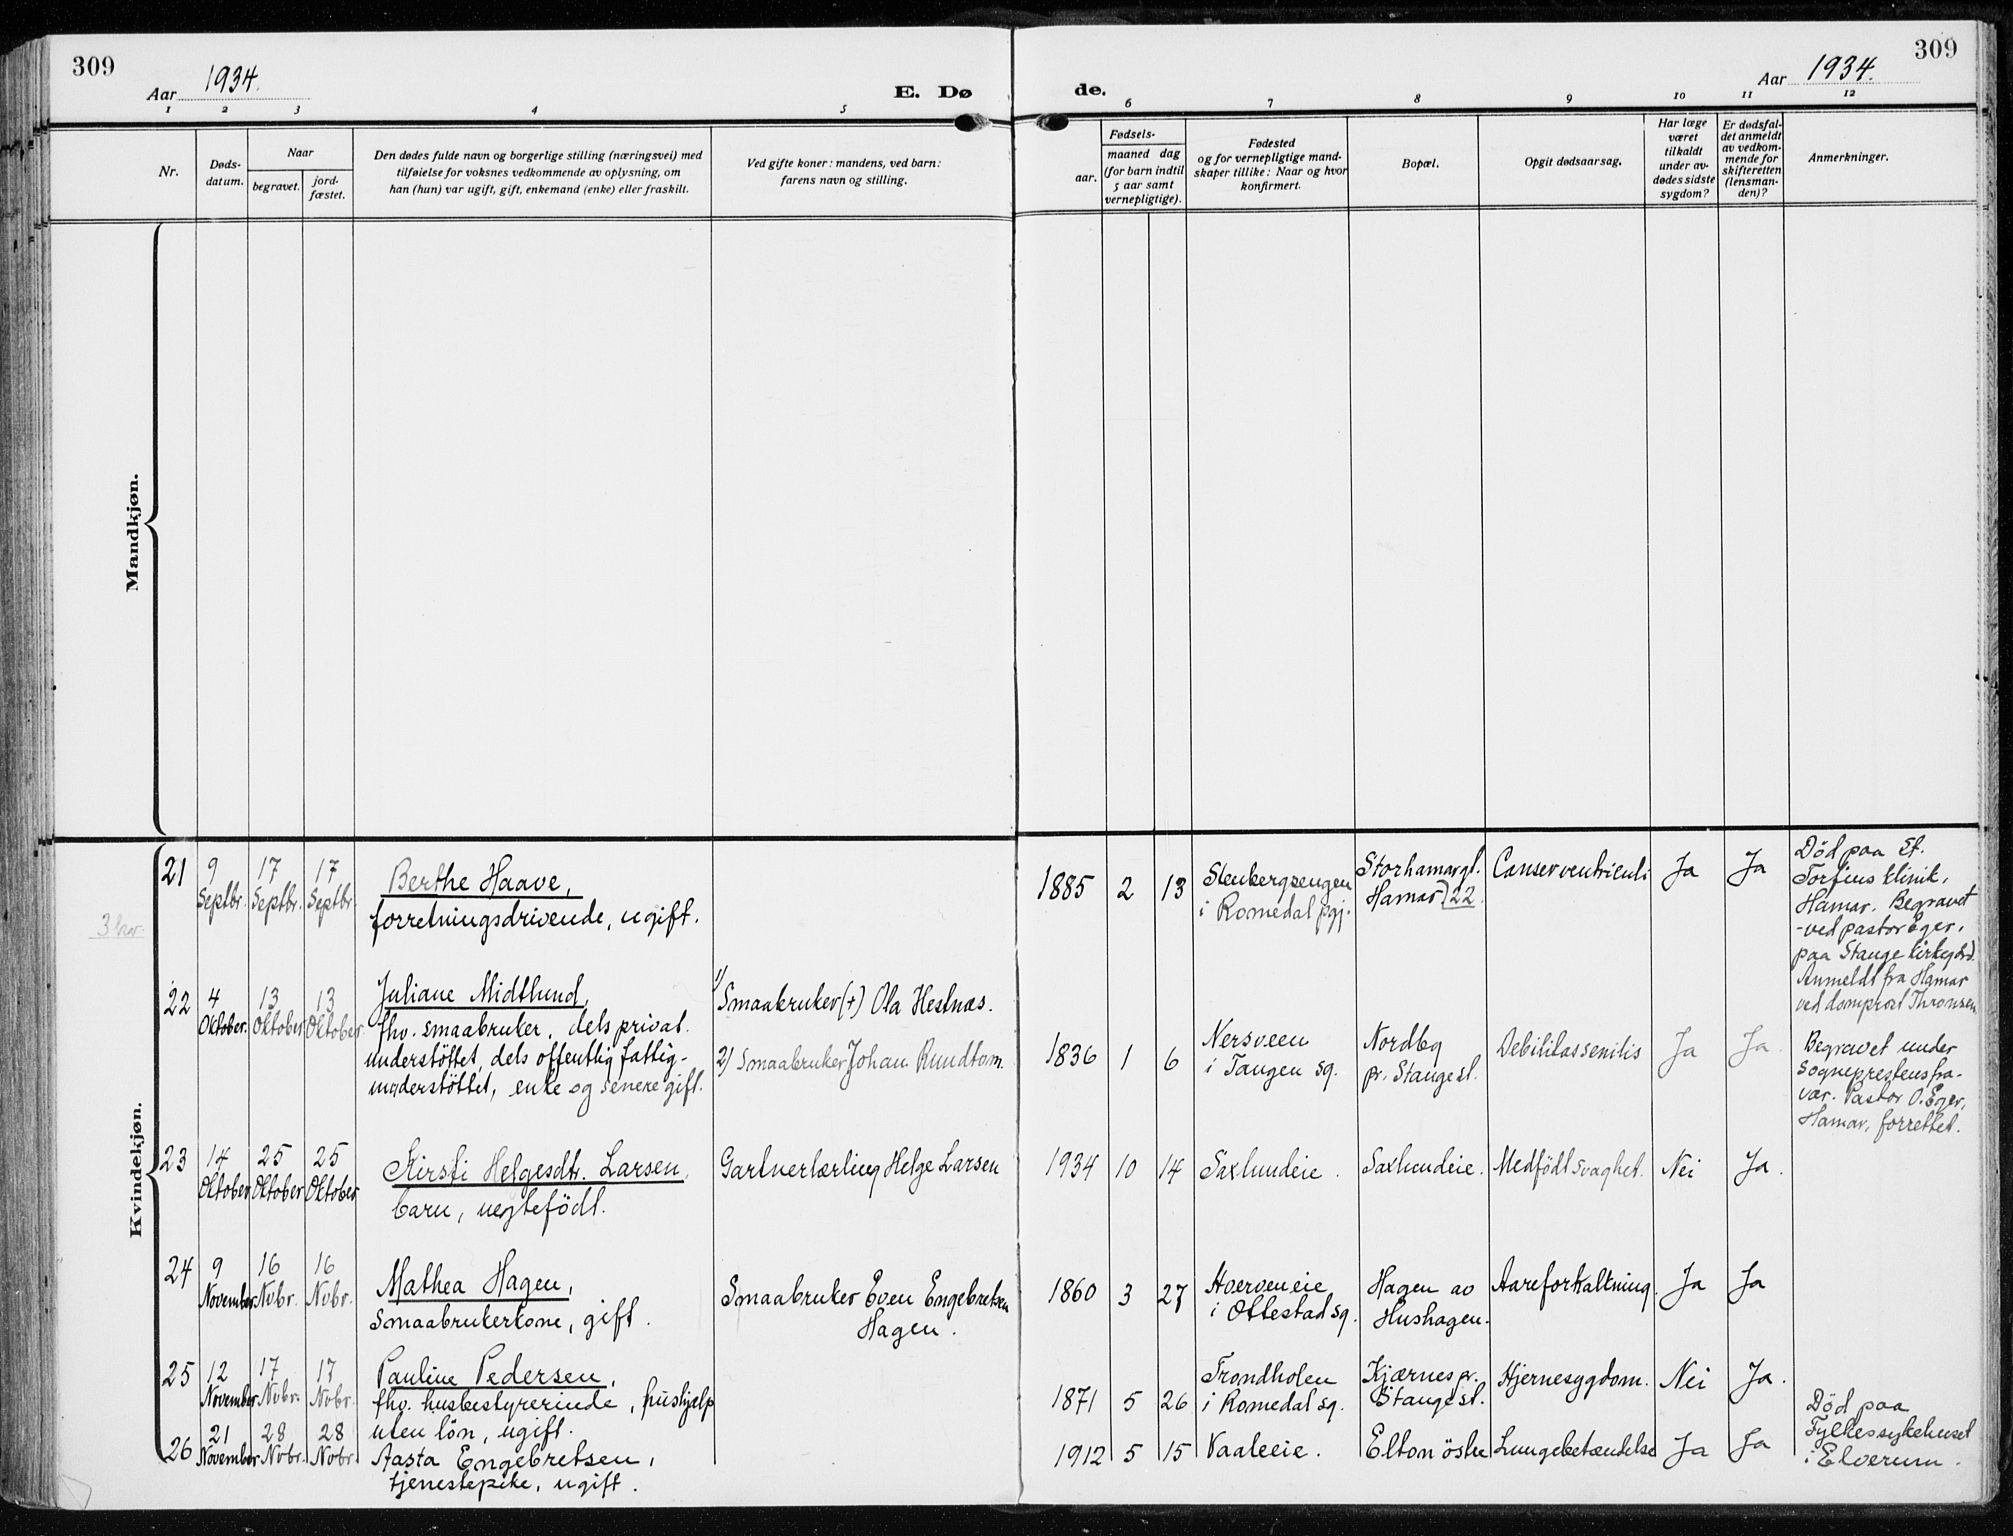 309
Aar 1934.
E. Dø
de.
Aar 1934.
309
1 2 3 4 5 6 7 8 9 10 11 12
Nr.
Døds-
datum.
Naar
begravet.
jord-
fæstet.
Den dødes fulde navn og borgerlige stilling (næringsvei) med
tilføielse for voksnes vedkommende av oplysning, om
han (hun) var ugift, gift, enkemand (enke) eller fraskilt.
Ved gifte koner: mandens, ved barn:
farens navn og stilling.
Fødsels-
aar.
maaned dag
(for barn indtil
5 aar samt
vernepligtige).
Fødested
og for vernepligtige mand-
skaper tillike: Naar og hvor
konfirmert.
Bopæl.
Opgit dødsaarsag.
Har læge
været
tilkaldt
under av-
dødes sidste
sygdom?
Er dødsfal-
det anmeldt
av vedkom-
mende for
skifteretten
(lensman-
den)?
Anmerkninger.
Mandkjøn.
Kvindekjøn.
21
9
Septbr.
17
Septbr.
17
Septbr.
Berthe Haave,
forretningsdrivende, ugift.
1885 2 13
Stenbergsengen
i Romedal pgj.
Storhamargt.
Hamar 22.
Canser ventriculi
Ja
Ja
Død paa St.
Torfins klinik,
Hamar. Begravet
ved pastor Eger,
paa Stange kirkegård.
Anmeldt fra Hamar
ved domprost Thronsen
22
4
Oktober.
13
Oktober
13
Oktober.
Juliane Midtlund,
fhv. smaabruker, dels privat.
understöttet, dels offentlig fattig-
understöttet, enke og senere gift.
1) Smaabruker (+) Ola Hestnæs.
2) Smaabruker Johan Rundtom.
1836 1 6
Nersveen
i Tangen sg.
Nordbg
pr. Stange st.
Debilitas senilis
Ja
Ja.
Begravet under
sogneprestens fra-
vær. Pastor O. Eger,
Hamar, forrettet.
23
14
Oktober
25
Oktober
25
Oktober
Kirsti Helgesdtr. Larsen,
barn, uegtefödt.
Gartnerlærling Helge Larsen
1934 10 14
Saxlundeie.
Saxlundeie.
Medfödt svaghet.
Nei
Ja.
24
9
November
16
Nvbr.
16
Nvbr.
Mathea Hagen,
Smaabrukerkone, gift.
Smaabruker Even Engebretsen
Hagen.
1860 3 27
Hverveneie
i Ottestad sg.
Hagen av
Hushagen.
Aareforkaltning.
Ja
Ja
25
12
November
17
Nvbr.
17
Nvbr.
Pauline Pedersen,
fhv. husbestyrerinde, hushjelp
uten lön, ugift.
1871 5 26
Trondholen
i Romedal sg.
Kjærnes pr.
Stange st.
Hjernesygdom.
Nei
Ja.
26
21
November
28
Nvbr.
28
Nvbr.
Aasta Engebretsen,
tjenestepike, ugift.
1912 5 15
Vaaleeie.
Elton östre
Lungebetændelse
Ja
Ja
Død paa
Fylkessykehuset
i Elverum.